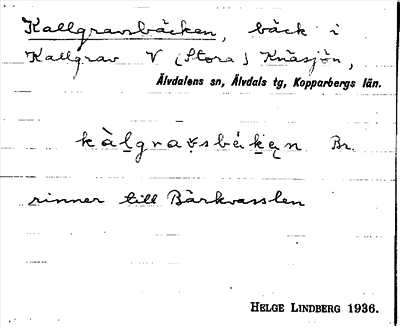 Kallgravbäcken, bäck i
Kallgrav V (Stora) Knäsjön,
Älvdalens sn, Älvdals tg, Kopparbergs län.
Br.
rinner till Bärkvasslen
HELGE LINDBERG 1936.